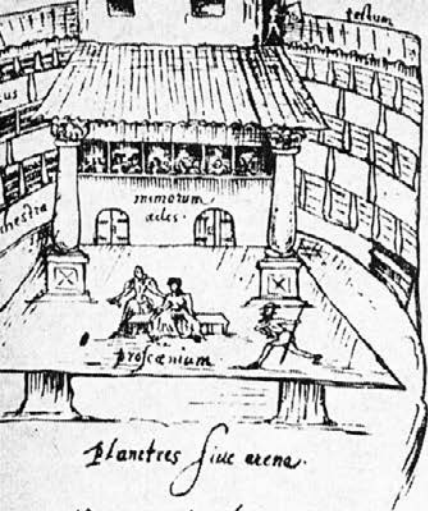 tectum
us
mimorum
ædes.
chestra
proscænium.
Planities siue arena.